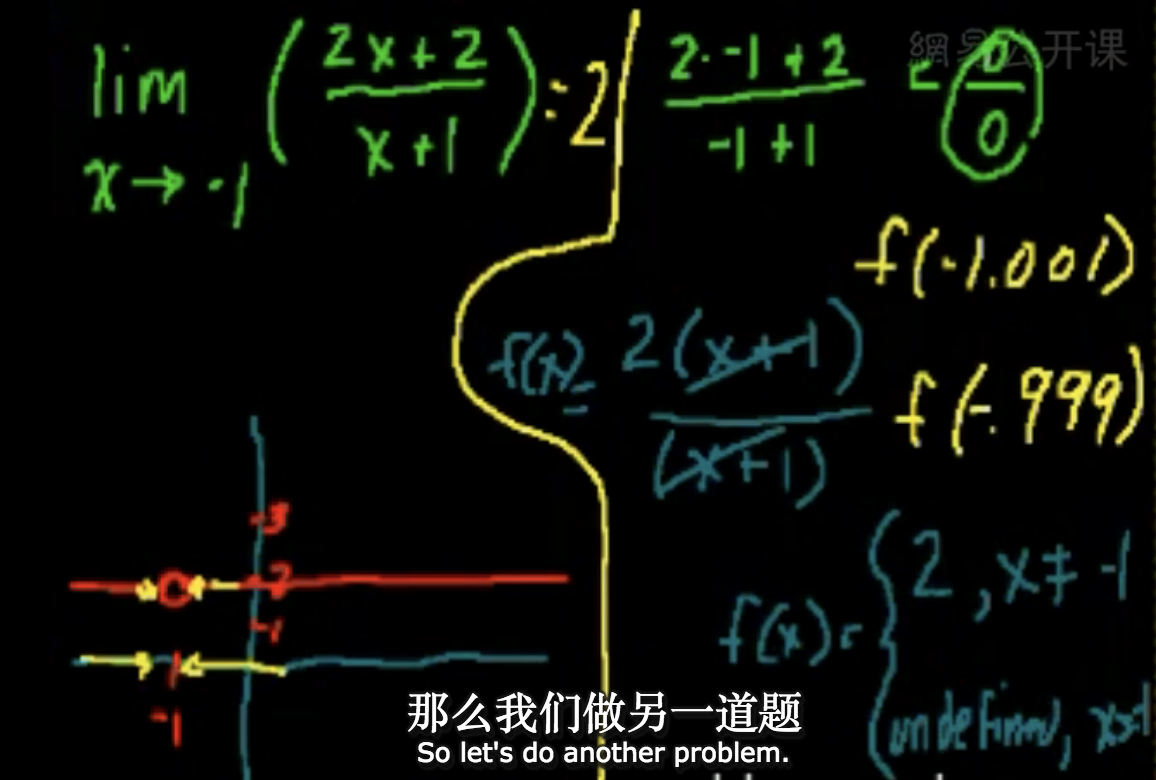 網易公开课
lim x→-1 ( (2x+2)/(x+1) ) = 2
(2·-1+2)/(-1+1) = 0/0
f(-1.001)
f(x) = 2(x+1)/(x+1)
f(-.999)
3
2
-1
-1
f(x) = { 2, x≠-1
undefined, x=-1
那么我们做另一道题
So let's do another problem.